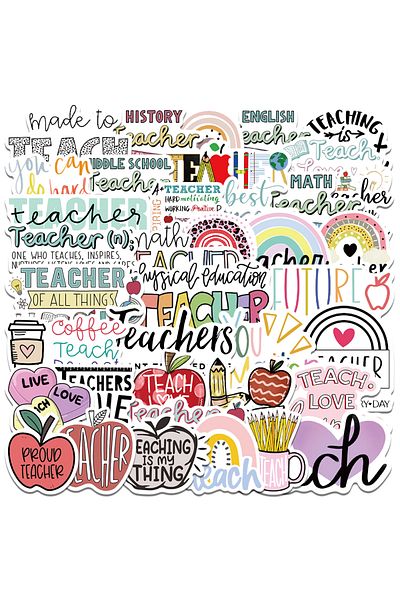 made to
TEACH
HISTORY
Teacher
ENGLISH
Teacher
TEACHING
is
you can
do hard
MIDDLE SCHOOL
Teacher
TEACH
Teach,
TEACHER
HARD motivating
WORKING Positive
best
MATH
Teacher
teacher
Teacher (n);
ONE WHO TEACHES, INSPIRES,
math
TEACHER
OF ALL THINGS
physical education
TEACHER
FUTURE
Coffee
Teach,
Teachers
YOU
TEACHER
LIVE
LOVE
TEACHERS
TEACH
TEACH.
LOVE
PROUD
TEACHER
TEACHER
TEACHING
IS MY
THING
teach
TEACH